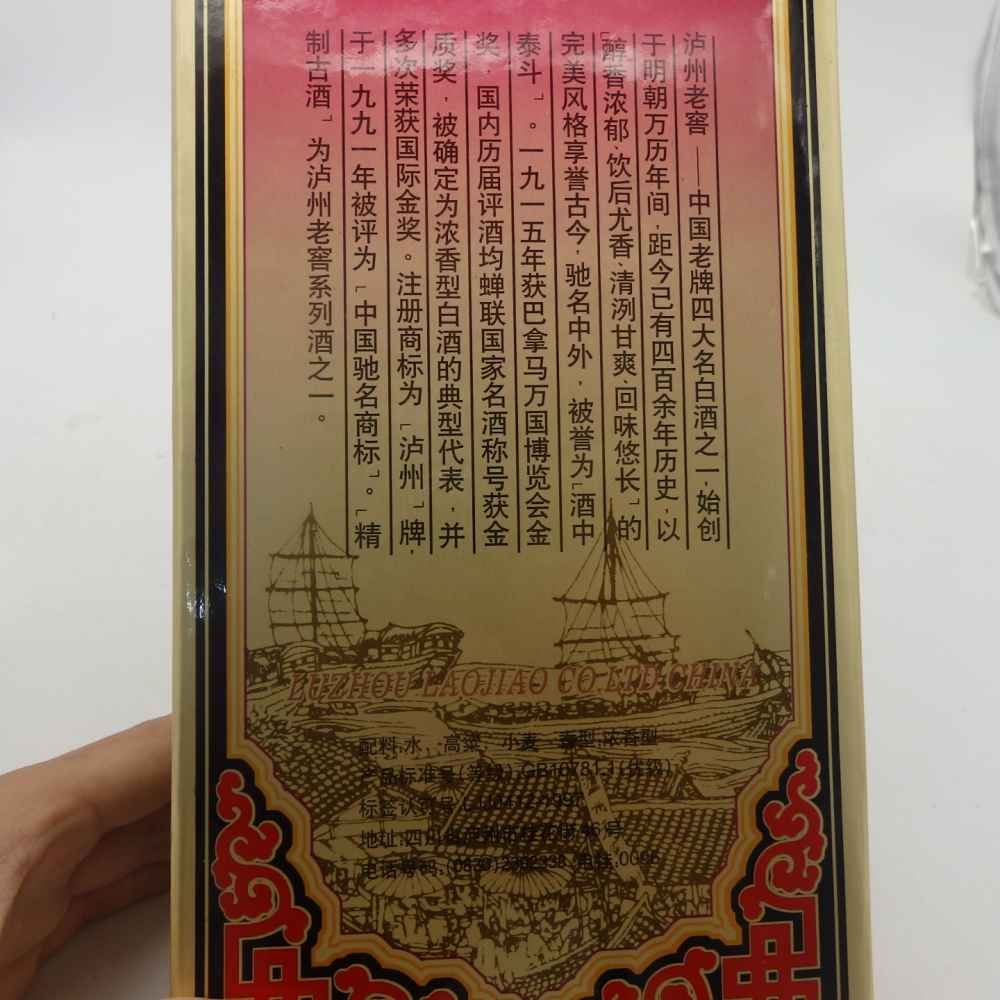 泸州老窖——中国老牌四大名白酒之一,始创
于明朝万历年间,距今已有四百余年历史,以
「醇香浓郁、饮后尤香、清洌甘爽、回味悠长」的
完美风格享誉古今,驰名中外,被誉为「酒中
泰斗」。一九一五年获巴拿马万国博览会金
奖,国内历届评酒均蝉联国家名酒称号获金
质奖,被确定为浓香型白酒的典型代表,并
多次荣获国际金奖。注册商标为「泸州」牌,
于一九九一年被评为「中国驰名商标」。「精
制古酒」为泸州老窖系列酒之一。
LUZHOU LAOJIAO CO.LTD.CHINA
配料:水、高粱、小麦 香型:浓香型
产品标准号(等级):GB10781.1(优级)
标签认可号:
地址:四川
电话号码: